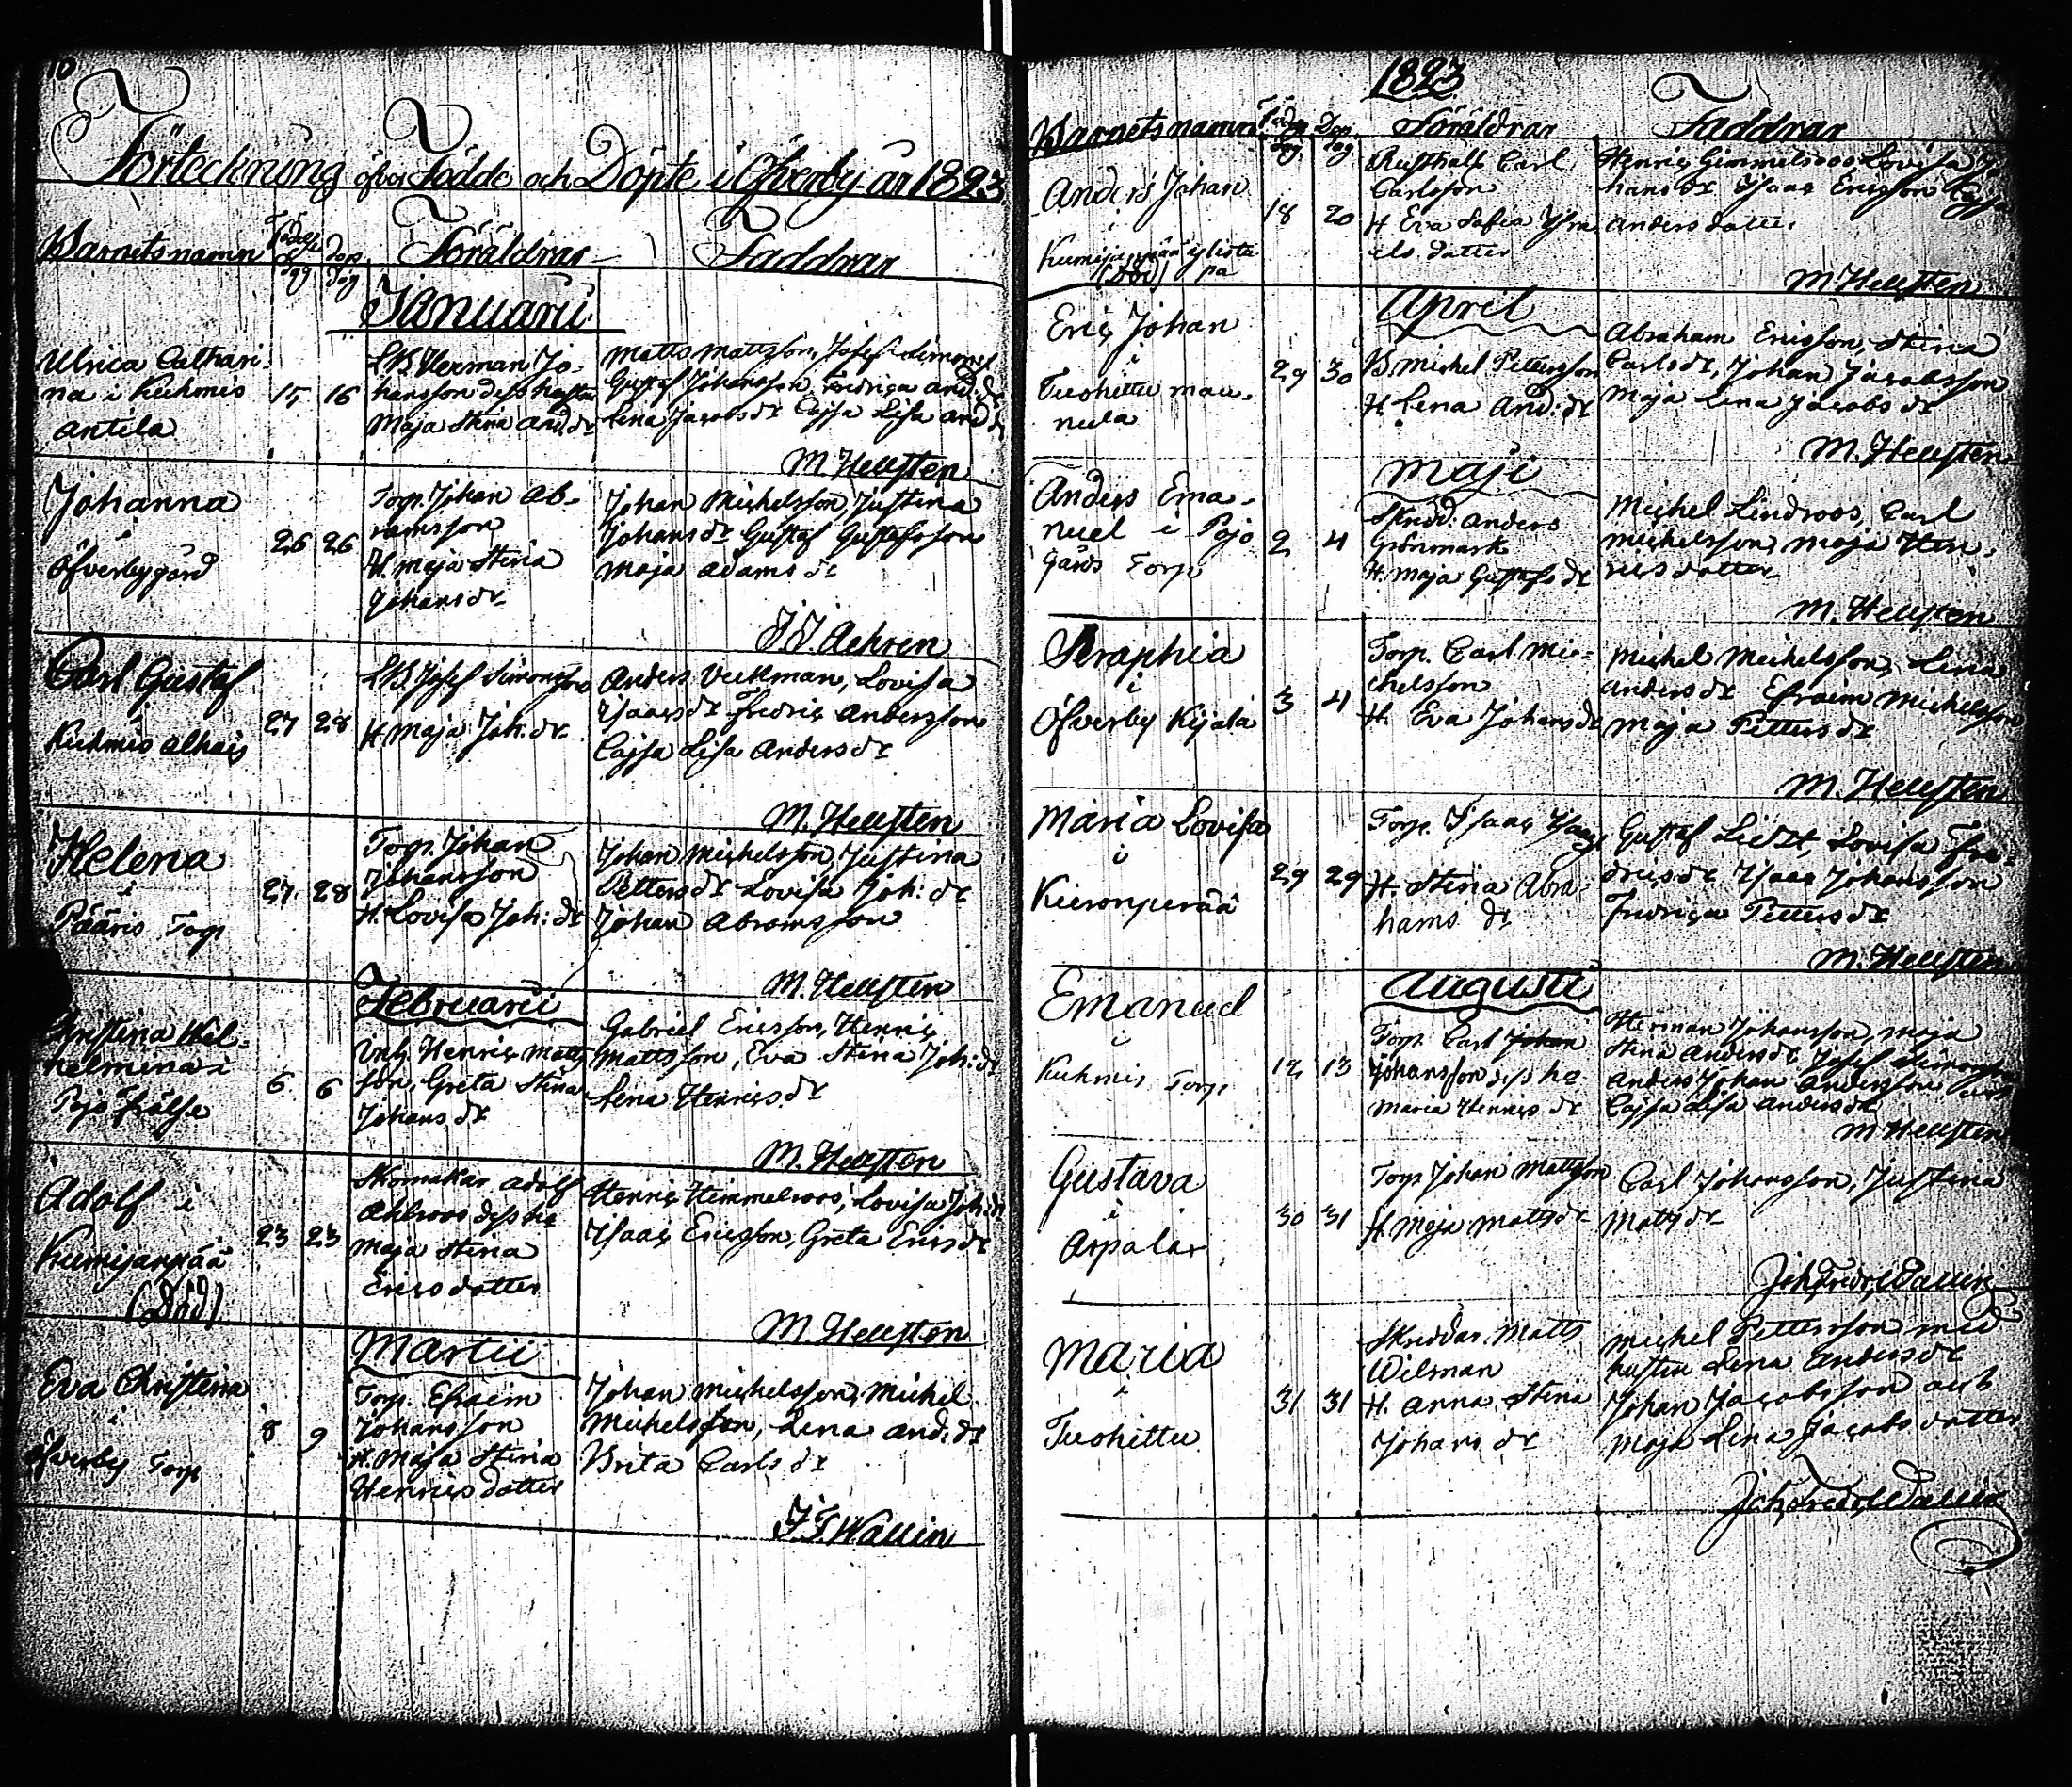 10
Förteckning öfver Födde och Döpte i Öfverby år 1823
Barnets namn Födelse dag Dop dag Föräldrar Faddrar
Januarii
Ulrica Cathari-
na i Kuhmis
Antila
15 16
LB. Herman Jo-
hansson dess hustru
Maja Stina And. dr
Matts Mattsson, Josef Simonss.
Gustaf Johansson, Fredrica And. dr
Lena Jacobs dr Cajsa Lisa And dr
M. Hellsten
Johanna
i
Öfverbygård
26 26
Torp. Johan Ab-
ramsson
H. Maja Stina
Johans dr
Johan Michelsson, Justina
Johans dr Gustaf Gustafsson
Maja Adams dr
J. J. Aehren
Carl Gustaf
i
Kuhmis Alhais
27 28
LB. Josef Simonsson
H Maja Joh. dr
Anders Veckman, Lovisa
Isaacs dr Fredric Andersson
Cajsa Lisa Anders dr
M. Hellsten
Helena
i
Pääris Torp
27. 28
Torp. Johan
Johansson
H. Lovisa Joh: dr
Johan Michelsson, Justina
Petters dr Lovisa Joh: dr
Johan Abramsson
M. Hellsten
Februarii
Christina Wil-
helmina i
Pojo Frälse
6. 6
Inh. Henric Matts
son, Greta Stina
Johans dr
Gabriel Ericsson, Henric
Mattsson, Eva Stina Joh: dr
Lena Henrics dr
M. Hellsten
Adolf i
Kumijanpää
(Död)
23 23
Skomakar Adolf
Ahlroos dess h
Maja Stina
Erics dotter
Henric Himmelroos, Lovisa Joh: dr
Isaac Ericsson, Greta Erics dr
M. Hellsten
Martii
Eva Christina
i
Öfverby Torp
8 9
Torp. Efraim
Johansson
H. Maja Stina
Henrics dotter
Johan Michelsson, Michel
Michelsson, Lena And. dr
Brita Carls dr
J. F. Wallin
1823
Barnets namn Födelse dag Dop dag Föräldrar Faddrar
Anders Johan
i
(Död)
18 20
Rusthåll Carl
Carlsson
H Eva Sofia Isra
els dotter
Henric Lovisa Jo
hans dr Isaac Ericsson Cajsa
Anders dotter
M Hellsten
April
Eric Johan
i
Tuohittu mau-
nula
29 30
B Michel Pettersson
H. Lena And: dr
Abraham Ericsson, Stina
Carls dr, Johan Jacobsson
Maja Lena Jacobs dr
M. Hellsten
Maji
Anders Ema-
nuel i Pojo
Gårds Torp
2 4
Skredd. Anders
Grönmark
H. Maja Gustafs dr
Michel Lindroos, Carl
Michelsson, Maja Hen-
rics dotter
M. Hellsten
Seraphia
i
Öfverby Kijala
3 4
Torp. Carl Mic-
chelsson
H. Eva Johans dr
Michel Michelsson, Lena
Anders dr Efraim Michelsson
Maja Petters dr
M. Hellsten
Maria Lovisa
i
Kieronperää
29 29
Torp. Isaac Isacs
H. Stina Abra-
hams dr
Gustaf Lovisa Fre-
drics dr Isaac Johansson
Fredrica Petters dr
M. Hellsten
Augusti
Emanuel
i
Kuhmis Torp
12 13
Torp. Carl Johan
Johansson dess h
Maria Henrics dr
Herman Johansson, Maja
Stina Anders dr Josef Simonsson
Anders Johan Andersson
Cajsa Lisa Anders dr
M Hellsten
Gustava
i
Arpalax
30 31
Torp Johan Mattsson
H. Maja Matts dr
Carl Johansson, Justina
Matts dr
Joh. Fredr. Wallin
Maria
i
Tuohittu
31 31
Skräddar Matts
Wilman
H. Anna Stina
Johans dr
Michel Pettersson med
hustru Lena Anders dr
Johan Jacobsson och
Maja Lena Jacobs dotter
Joh. Fredr. Wallin